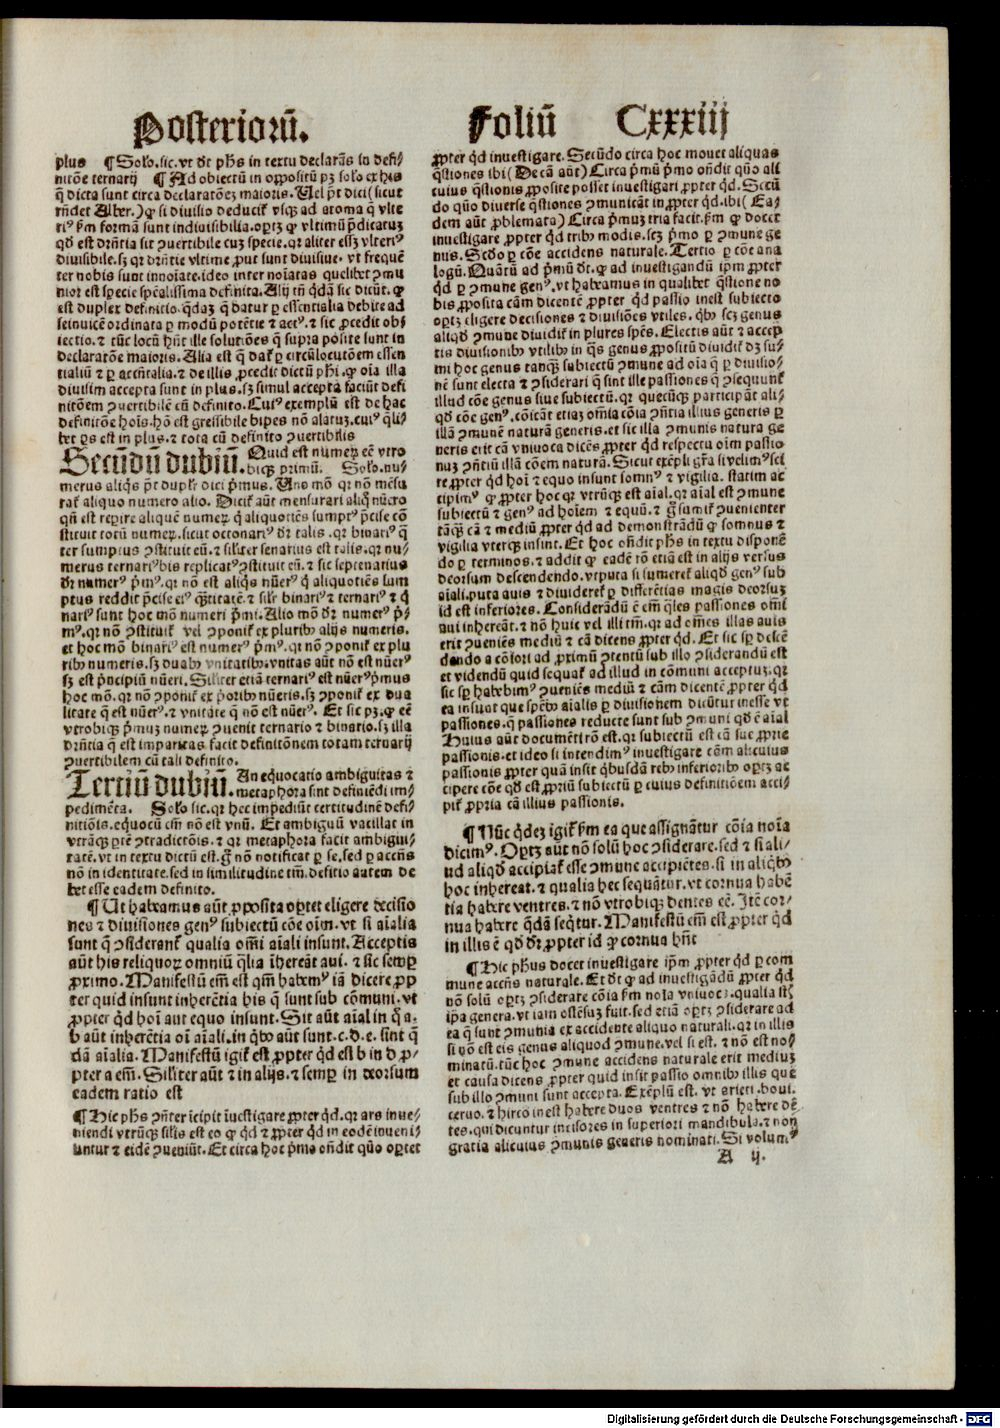 Posteriorū. Foliū Cxxxiij
plus ¶ Solo. sic. vt dr̄ phs in textu declarās in defi-
nitōe ternarij ¶ Ad obiectū in oppositū pꝫ solo ex his
q̄ dicta sunt circa declaratōeꝫ maioris. Uel pt̄ dici (sicut
rn̄det Alber.) ꝙ si diuisio deducit vsqꝫ ad atoma q̄ vlte
riꝰ ẜm formā sunt indiuisibilia. oꝑtꝫ ꝙ vltimū p̄dicatuꝫ
qd̓ est dr̄ntia sit ꝯuertibile cuꝫ specie. qꝛ aliter essꝫ vlteriꝰ
diuisibile. sꝫ qꝛ dr̄ntie vltime ꝓut sunt diuisiue. vt frequē
ter nobis sunt innoīate. ideo inter noīatas quelibet ꝯmu
nior est specie spēalissima definita. Alij tn̄ q̄dā sic dicūt. ꝙ
est duplex definitio. q̄daꝫ q̄ datur ꝑ essentialia debite ad
seinuicē ordinata ꝑ modū potētie ⁊ actꝰ. ⁊ sic ꝓcedit obi
iectio. ⁊ tūc locū hn̄t ille solutiōes q̄ supra posite sunt in
declaratōe maioris. Alia est q̄ dat̄ ꝑ circūlocutōem essen
tialiū ⁊ ꝑ accn̄talia. ⁊ de illis ꝓcedit dictū phi. ꝙ oīa illa
diuisim accepta sunt in plus. sꝫ simul accepta faciūt defi
nitōem ꝯuertibilē cū definito. Cuiꝰ exemplū est de hac
definitōe hoīs. hō est gressibile bipes nō alatuꝫ. cuiꝰ q̄li
bet ꝑs est in plus. ⁊ tota cū definito ꝯuertibilis
Secūdū dubiū. Quid est numeꝝ eē vtro
biqꝫ primū. Solo. nu-
merus aliq̄s pt̄ duplr̄ dici p̄mus. Uno mō qꝛ nō mēsu
rat̄ aliquo numero alio. Dicit̄ aūt mensurari aliq̄ nūero
qn̄ est reꝑire aliquē numeꝝ q̄ aliquotiēs sumptꝰ p̄cise cō
stituit totū numeꝝ. sicut octonariꝰ dr̄ talis. qꝛ binariꝰ q̄
ter sumptus ꝯstituit eū. ⁊ silīter senarius est talis. qꝛ nu-
merus ternariꝰ bis replicatꝰ ꝯstituit eū. ⁊ sic septenarius
dr̄ numerꝰ p̄mꝰ. qꝛ nō est aliq̄s nūerꝰ q̄ aliquotiēs sum
ptus reddit p̄cise eiꝰ q̄ntitatē. ⁊ silr̄ binariꝰ ⁊ ternariꝰ ⁊ q̄
nariꝰ sunt hoc mō numeri p̄mi. Alio mō dr̄ numerꝰ p̄-
mꝰ. qꝛ nō ꝯstituit̄ vel ꝯponit̄ ex pluribꝰ alijs numeris.
et hoc mō binariꝰ est numerꝰ p̄mꝰ. qꝛ nō ꝯponit̄ ex plu
ribꝰ numeris. sꝫ duabꝰ vnitatibꝰ. vnitas aūt nō est nūerꝰ
sꝫ est p̄ncipiū nūeri. Silīter etiā ternariꝰ est nūerꝰ p̄mus
hoc mō. qꝛ nō ꝯponit̄ ex p̄oribꝰ nūeris. sꝫ ꝯponit̄ ex dua
litate q̄ est nūerꝰ. ⁊ vnitate q̄ nō est nūerꝰ. Et sic pꝫ. ꝙ eē
vtrobiqꝫ p̄muꝫ numeꝝ ꝯuenit ternario ⁊ binario. sꝫ illa
dr̄ntia q̄ est imparitas facit definitōnem totam ternarij
ꝯuertibilem cū tali definito.
Tertiū dubiū. An equocatio ambiguitas ⁊
metaphora sint definiēdi im-
pedimēta. Solo sic. qꝛ hec impediūt certitudinē defi-
nitiōis. eq̄uocū em̄ nō est vnū. Et ambiguū vacillat in
vtrāqꝫ ꝑtē ꝯtradictōis. ⁊ qꝛ metaphora facit ambigui-
tatē. vt in textu dictū est. gͦ nō notificat ꝑ se. sed ꝑ accn̄s
nō in identitate. sed in similitudine tm̄. defitio autem de
bet esse eadem definito.
¶ Ut habeamus aūt ꝓposita oꝑtet eligere decisio
nes ⁊ diuisiones genꝰ subiectū cōe oīm. vt si aīalia
sunt q̄ ꝯsiderant̄ qualia omni aīali insunt. Acceptis
aūt his reliquoꝝ omniū q̄lia īhereāt aui. ⁊ sic semꝑ
ꝓximo. Manifestū em̄ est qm̄ habemꝰ iā dicere ꝓp
ter quid insunt inherētia his q̄ sunt sub cōmuni. vt
ꝓpter qd̓ hoī aut equo insunt. Sit aūt aīal in q̄ a.
b aūt inherētia oī aīali. in q̄bꝰ aūt sunt. c. d. e. sint q̄
dā aīalia. Manifestū igit̄ est ꝓpter qd̓ est b in d ꝓ-
pter a em̄. Silīter aūt ⁊ in alijs. ⁊ semꝑ in deorsum
eadem ratio est
¶ Hic phs ꝯn̄ter īcipit īuestigare ꝓpter qd̓. qꝛ ars inue-
niendi vtrūqꝫ silīs est eo ꝙ qd̓ ⁊ ꝓpter qd̓ in eodē inueni-
untur ⁊ eidē ꝯueniūt. Et circa hoc p̄mo on̄dit quō oꝑtet
ꝓpter qd̓ inuestigare. Secūdo circa hoc mouet aliquas
q̄stiones ibi (De cā aūt) Circa p̄mū p̄mo on̄dit quō ali
cuius q̄stionis ꝓposite posset inuestigari ꝓpter qd̓. Secū
do quō diuerse q̄stiones ꝯmunicāt in ꝓpter qd̓. ibi (Ea-
dem aūt ꝓblemata) Circa p̄muꝫ tria facit. ẜm ꝙ docet
inuestigare ꝓpter qd̓ tribꝰ modis. scꝫ p̄mo ꝑ ꝯmune ge
nus. Scdo ꝑ cōe accidens naturale. Tertio ꝑ cōe ana
logū. Quātū ad p̄mū dr̄. ꝙ ad inuestigandū ipm̄ ꝓpter
qd̓ ꝑ ꝯmune genꝰ. vt habeamus in qualibet q̄stione no
bis ꝓposita cām dicentē ꝓpter qd̓ passio inest subiecto
oꝑtꝫ eligere decisiones ⁊ diuisiōes vtiles. qͥbꝰ scꝫ genus
aliqd̓ ꝯmune diuidit̄ in plures spēs. Electis aūt ⁊ accep
tis diuisionibꝰ vtilibꝰ in q̄s genus ꝓpositū diuidit̄ dꝫ su-
mi hoc genus tanqꝫ subiectū ꝯmune ad oīa q̄ ꝑ diuisio-
nē sunt electa ⁊ ꝯsiderari q̄ sint ille passiones q̄ ꝯsequunt̄
illud cōe genus siue subiectū. qꝛ quecūqꝫ participāt ali-
qd̓ cōe genꝰ. cōicāt etiaꝫ om̄ia cōia ꝯn̄tia illius generis ꝑ
illā ꝯmunē naturā generis. et sic illa ꝯmunis natura ge
neris erit cā vniuoca dicēs ꝓpter qd̓ respectu oīm passio
nuꝫ ꝯn̄tiū illā cōem naturā. Sicut exēpli gr̄a si velimꝰ sci
re ꝓpter qd̓ hoī ⁊ equo insunt somnꝰ ⁊ vigilia. statim ac
cipimꝰ ꝙ ꝓpter hoc qꝛ vtrūqꝫ est aīal. qꝛ aīal est ꝯmune
subiectū ⁊ genꝰ ad hoīem ⁊ equū. ⁊ gͦ sumit̄ ꝯuenienter
tāqꝫ cā ⁊ mediū ꝓpter qd̓ ad demonstrādū ꝙ somnus ⁊
vigilia vterqꝫ insint. Et hoc on̄dit phs in textu disponē
do ꝑ terminos. ⁊ addit ꝙ eadē rō etiā est in alijs versus
deorsum descendendo. vtputa si sumeret̄ aliqd̓ genꝰ sub
aīali. puta auis ⁊ diuideret̄ ꝑ differētias magis deorsuꝫ
id est inferiores. Considerādū ē em̄ q̄les passiones omī
aui inhereāt. ⁊ nō huic vel illi tm̄. qꝛ ad om̄es illas auis
erit ꝯueniēs mediū ⁊ cā dicens ꝓpter qd̓. Et sic sꝑ descē
dendo a cōiori ad ꝓximū ꝯtentū sub illo ꝯsiderandū est
et videndū quid sequat̄ ad illud in cōmuni acceptuꝫ. qꝛ
sic sꝑ habebimꝰ ꝯueniēs mediū ⁊ cām dicentē ꝓpter qd̓
ea insunt que spēbꝰ aīalis ꝑ diuisionem dicūtur inesse vt
passiones. q̄ passiones reducte sunt sub ꝯmuni qd̓ ē aīal
Huius aūt documēti rō est. qꝛ subiectū est cā sue ꝓprie
passionis. et ideo si intendimꝰ inuestigare cām alicuius
passionis ꝓpter quā insit q̄busdā rebꝰ inferioribꝰ oꝑtꝫ ac
cipere cōe qd̓ est ꝓriū subiectū ꝑ cuius definitiōem acci-
pit̄ ꝓpria cā illius passionis.
¶ Nūc q̄deꝫ igit̄ ẜm ea que assignātur cōia noīa
dicimꝰ. Oꝑtꝫ aūt nō solū hoc ꝯsiderare. sed ⁊ si ali-
ud aliqd̓ accipiat̄ esse ꝯmune accipiētes. si in aliqͥbꝰ
hoc inhereat. ⁊ qualia hec sequātur. vt cornua habē
tia habere ventres. ⁊ nō vtrobiqꝫ dentes eē. Itē cor-
nua habere q̄dā seq̄tur. Manifestū em̄ est ꝓpter qd̓
in illis ē qd̓ dr̄ ꝓpter id ꝙ cornua hn̄t
¶ Hic phus docet inuestigare ipm̄ ꝓpter qd̓ ꝑ com
mune accn̄s naturale. Et dr̄ ꝙ ad inuestigādū ꝓpter qd̓
nō solū oꝑtꝫ ꝯsiderare cōia ẜm noīa vniuoca. qualia st̄
ipā genera. vt iam ostēsuꝫ fuit. sed etiā oꝑtꝫ ꝯsiderare ad
ea q̄ sunt ꝯmunia ex accidente aliquo naturali. qꝛ in illis
si nō est eis genus aliquod ꝯmune. vel si est. ⁊ nō est no-
minatū. tūc hoc ꝯmune accidens naturale erit mediuꝫ
et causa dicens ꝓpter quid insit passio omnibꝰ illis que
sub illo ꝯmuni sunt accepta. Exēplū est. vt arieti. boui.
ceruo. ⁊ hirco inest habere duos ventres ⁊ nō habere dē
tes. qui dicuntur incisores in superiori mandibula. ⁊ non
gratia alicuius ꝯmunis generis nominati. Si volumꝰ
A ij.
Digitalisierung gefördert durch die Deutsche Forschungsgemeinschaft - DFG